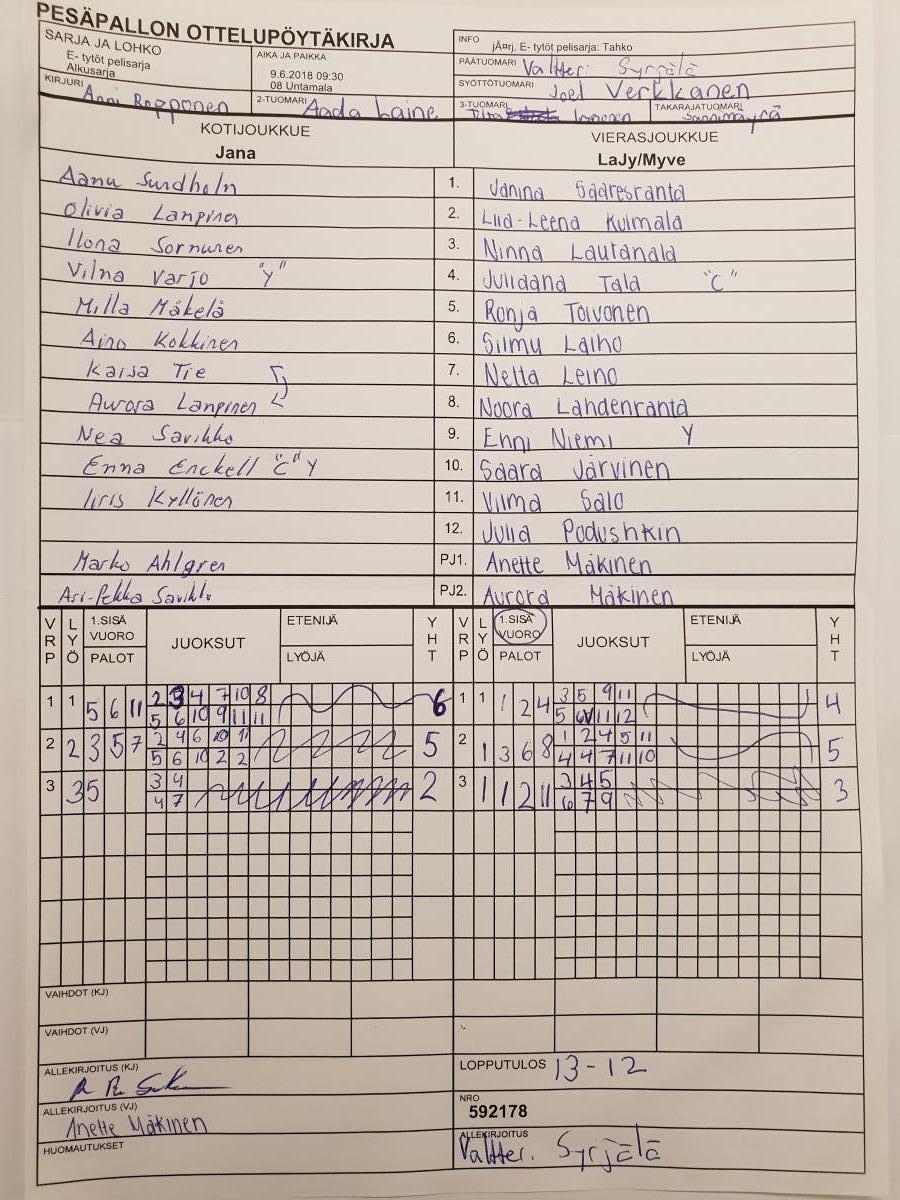 PESÄPALLON OTTELUPÖYTÄKIRJA
SARJA JA LOHKO
E- tytöt pelisarja
Alkusarja
AIKA JA PAIKKA
9.6.2018 09:30
08 Untamala
INFO
jÃ¤rj. E- tytöt pelisarja: Tahko
PÄÄTUOMARI Valtter. Syrjälä
SYÖTTÖTUOMARI Joel Verkkanen
KIRJURI Anni Repponen
2-TUOMARI Aada Laine
3-TUOMARI
TAKARAJATUOMARI
KOTIJOUKKUE
Jana
VIERASJOUKKUE
LaJy/Myve
Aanu Sundholm 1. Janina Saaresranta
Olivia Lanpinen 2. Liia-Leena Kulmala
Ilona Sornunen 3. Ninna Lautanala
Vilna Varjo "Y" 4. Juliaana Tala "C"
Milla Mäkelä 5. Ronja Toivonen
Aino Kokkinen 6. Silmu Laiho
Kaisa Tie 7. Netta Leino
Aurora Lanpinen 8. Noora Lahdenranta
Nea Savikko 9. Enni Niemi Y
Enna Enckell "C" Y 10. Saara Järvinen
Iiris Kyllönen 11. Vilma Salo
12. Julia Podushkin
Marko Ahlgren PJ1. Anette Mäkinen
Ari-Pekka Savikko PJ2. Aurora Mäkinen
VRP LYÖ 1.SISÄ VUORO PALOT JUOKSUT ETENIJÄ LYÖJÄ YHT VRP LYÖ 1.SISÄ VUORO PALOT JUOKSUT ETENIJÄ LYÖJÄ YHT
1 1 5 6 11 2 3 4 7 10 8 6 1 1 1 2 4 3 5 9 11 4
5 6 10 9 11 11 5 6 11 12
2 2 3 5 7 2 4 6 10 11 5 2 1 3 6 8 1 2 4 5 11 5
5 6 10 2 2 4 4 7 11 10
3 3 5 3 4 2 3 1 1 2 11 3 4 5 3
4 7 6 7 9
VAIHDOT (KJ)
VAIHDOT (VJ)
ALLEKIRJOITUS (KJ)
LOPPUTULOS 13-12
ALLEKIRJOITUS (VJ)
Anette Mäkinen
NRO
592178
HUOMAUTUKSET
ALLEKIRJOITUS
Valtter. Syrjälä